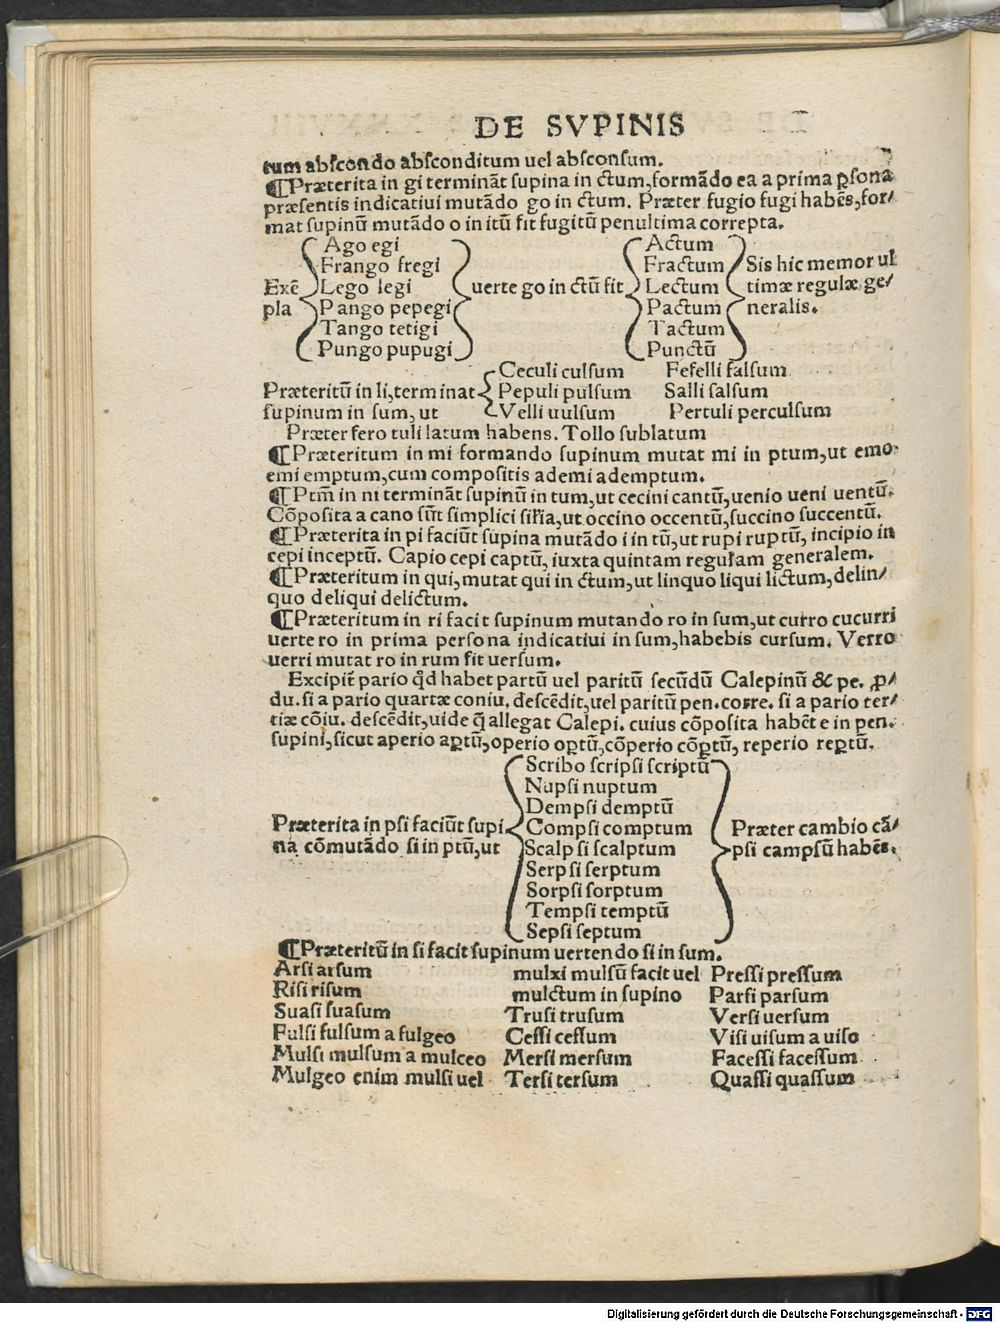 DE SVPINIS
tum abſcondo abſconditum uel abſconſum.
¶Præterita in gi terminãt ſupina in ctum, formãdo ea a prima ꝑſona
præſentis indicatiui mutãdo go in ctum. Præter fugio fugi habẽs, for/
mat ſupinũ mutãdo o in itũ fit fugitũ penultima correpta.
Exẽ
pla
Ago egi
Frango fregi
Lego legi
Pango pepegi
Tango tetigi
Pungo pupugi
uerte go in ctũ fit
Actum
Fractum
Lectum
Pactum
Tactum
Punctũ
Sis hic memor ul
timæ regulæ ge/
neralis.
Præteritũ in li, terminat
ſupinum in ſum, ut
Ceculi culſum Fefelli falſum
Pepuli pulſum Salli ſalſum
Velli uulſum Pertuli perculſum
Præter fero tuli latum habens. Tollo ſublatum
¶Præteritum in mi formando ſupinum mutat mi in ptum, ut emo
emi emptum, cum compoſitis ademi ademptum.
¶Ptm̃ in ni terminãt ſupinũ in tum, ut cecini cantũ, uenio ueni uentũ.
Cõpoſita a cano ſũt ſimplici ſiľia, ut occino occentũ, ſuccino ſuccentũ.
¶Præterita in pi faciũt ſupina mutãdo i in tũ, ut rupi ruptũ, incipio in
cepi inceptũ. Capio cepi captũ, iuxta quintam regulam generalem.
¶Præteritum in qui, mutat qui in ctum, ut linquo liqui lictum, delin/
quo deliqui delictum.
¶Præteritum in ri facit ſupinum mutando ro in ſum, ut curro cucurri
uerte ro in prima perſona indicatiui in ſum, habebis curſum. Verro
uerri mutat ro in rum fit uerſum.
Excipiť pario qd̾ habet partũ uel paritũ ſecũdũ Calepinũ & pe. ꝓ/
du. ſi a pario quartæ coniu. deſcẽdit, uel paritũ pen. corre. ſi a pario ter/
tiæ cõiu. deſcẽdit, uide q̃ allegat Calepi. cuius cõpoſita habẽt e in pen.
ſupini, ſicut aperio aꝑtũ, operio oꝑtũ, cõperio cõꝑtũ, reperio reꝑtũ.
Præterita in pſi faciũt ſupi
na cõmutãdo ſi in ptũ, ut
Scribo ſcripſi ſcriptũ
Nupſi nuptum
Dempſi demptũ
Compſi comptum
Scalpſi ſcalptum
Serpſi ſerptum
Sorpſi ſorptum
Tempſi temptũ
Sepſi ſeptum
Præter cambio cã/
pſi campſũ habẽs.
¶Præteritũ in ſi facit ſupinum uertendo ſi in ſum.
Arſi arſum
Riſi riſum
Suaſi ſuaſum
Fulſi fulſum a fulgeo
Mulſi mulſum a mulceo
Mulgeo enim mulſi uel
mulxi mulſũ facit uel
mulctum in ſupino
Truſi truſum
Ceſſi ceſſum
Merſi merſum
Terſi terſum
Preſſi preſſum
Parſi parſum
Verſi uerſum
Viſi uiſum a uiſo
Faceſſi faceſſum
Quaſſi quaſſum
Digitalisierung gefördert durch die Deutsche Forschungsgemeinschaft - DFG